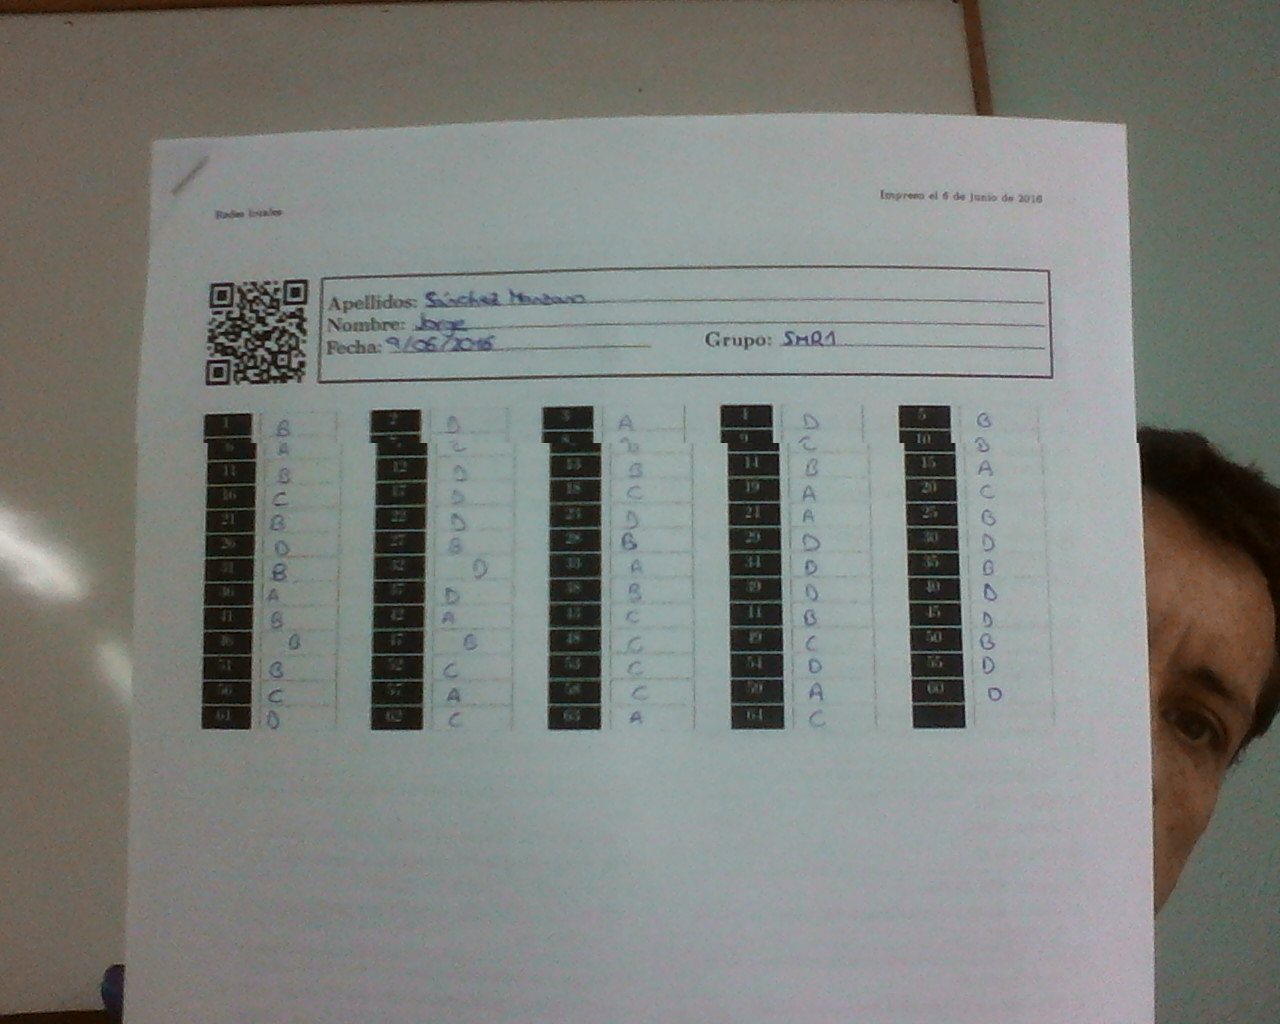 Impreso el 6 de junio de 2016
Redes locales
Apellidos: Sánchez Manzano
Nombre: Jorge
Fecha: 9/06/2016 Grupo: SMR1
1 B 2 D 3 A 4 D 5 B
6 A 7 C 8 D 9 C 10 D
11 B 12 D 13 B 14 B 15 A
16 C 17 D 18 C 19 A 20 C
21 B 22 D 23 D 24 A 25 B
26 D 27 B 28 B 29 D 30 D
31 B 32 D 33 A 34 D 35 B
36 A 37 D 38 B 39 D 40 D
41 B 42 A 43 C 44 B 45 D
46 B 47 B 48 C 49 C 50 B
51 B 52 C 53 C 54 D 55 D
56 C 57 A 58 C 59 A 60 D
61 D 62 C 63 A 64 C